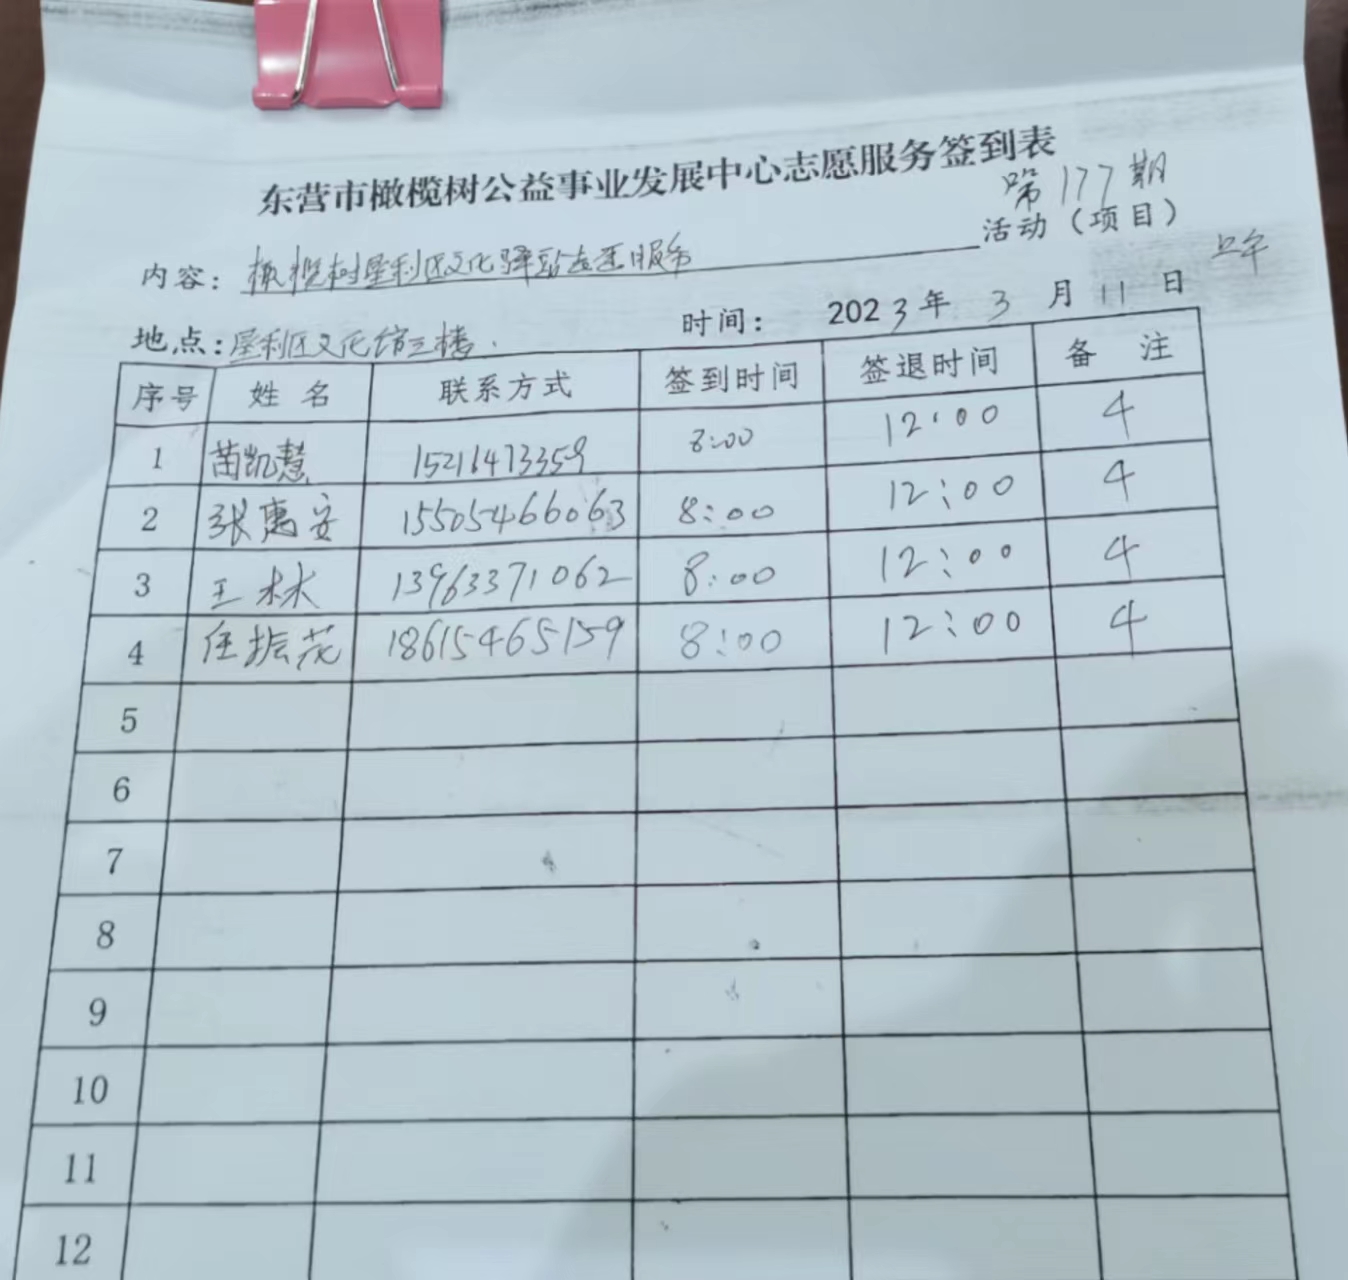 东营市橄榄树公益事业发展中心志愿服务签到表
第177期
内容：橄榄树垦利区文化驿站志愿服务 活动（项目）
上午
地点：垦利区文化馆三楼. 时间： 2023年 3 月 11 日
序号 姓 名 联系方式 签到时间 签退时间 备 注
1 苗凯慧 15216473359 8:00 12:00 4
2 张惠安 15505466063 8:00 12:00 4
3 王林 13963371062 8:00 12:00 4
4 任振花 18615465159 8:00 12:00 4
5
6
7
8
9
10
11
12